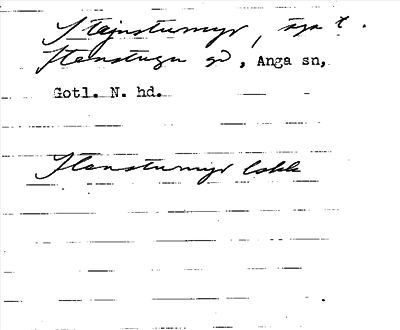 Stajnstumyr, äga t.
Stenstugu gd, Anga sn,
Gotl. N. hd.
Stenstumyr lokk